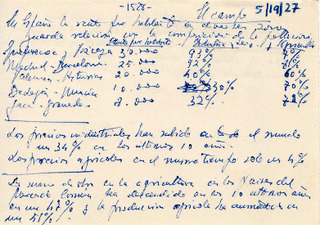 -1528-
El campo
5/19/27
En España la renta por habitante en diversas zonas
guarda relación con la composición de la población
Guipúzcoa y Vizcaya 30.000 93% 94%
Madrid - Barcelona 25.000 92% 81%
Valencia - Asturias 20.000 60% 60%
Badajoz - Murcia 10.000 30% 70%
Jaén - Granada 8.000 32% 72%
Los precios industriales han subido en todo el mundo
un 34% en los últimos 10 años.
Los precios agrícolas en el mismo tiempo solo un 4%
La mano de obra en la agricultura en los países del
Mercado Común ha descendido en los 10 últimos años
en un 47% y la producción agrícola ha aumentado en
un 51%.